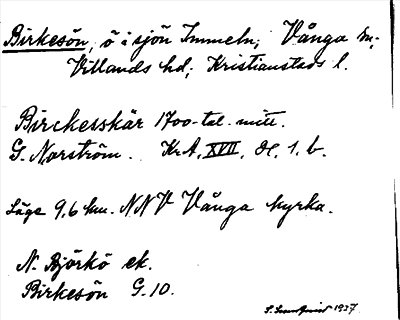 Birkesön, ö i sjön Immeln, Vånga sn,
Villands hd, Kristianstads l.
Birckesskär 1700-tal. mitt.
G. Norström. Kr.A, XVII, Sk, 1, b.
Läge 9,6 km. NNV Vånga kyrka.
N. Björkö ek.
Birkesön G.10.
1927